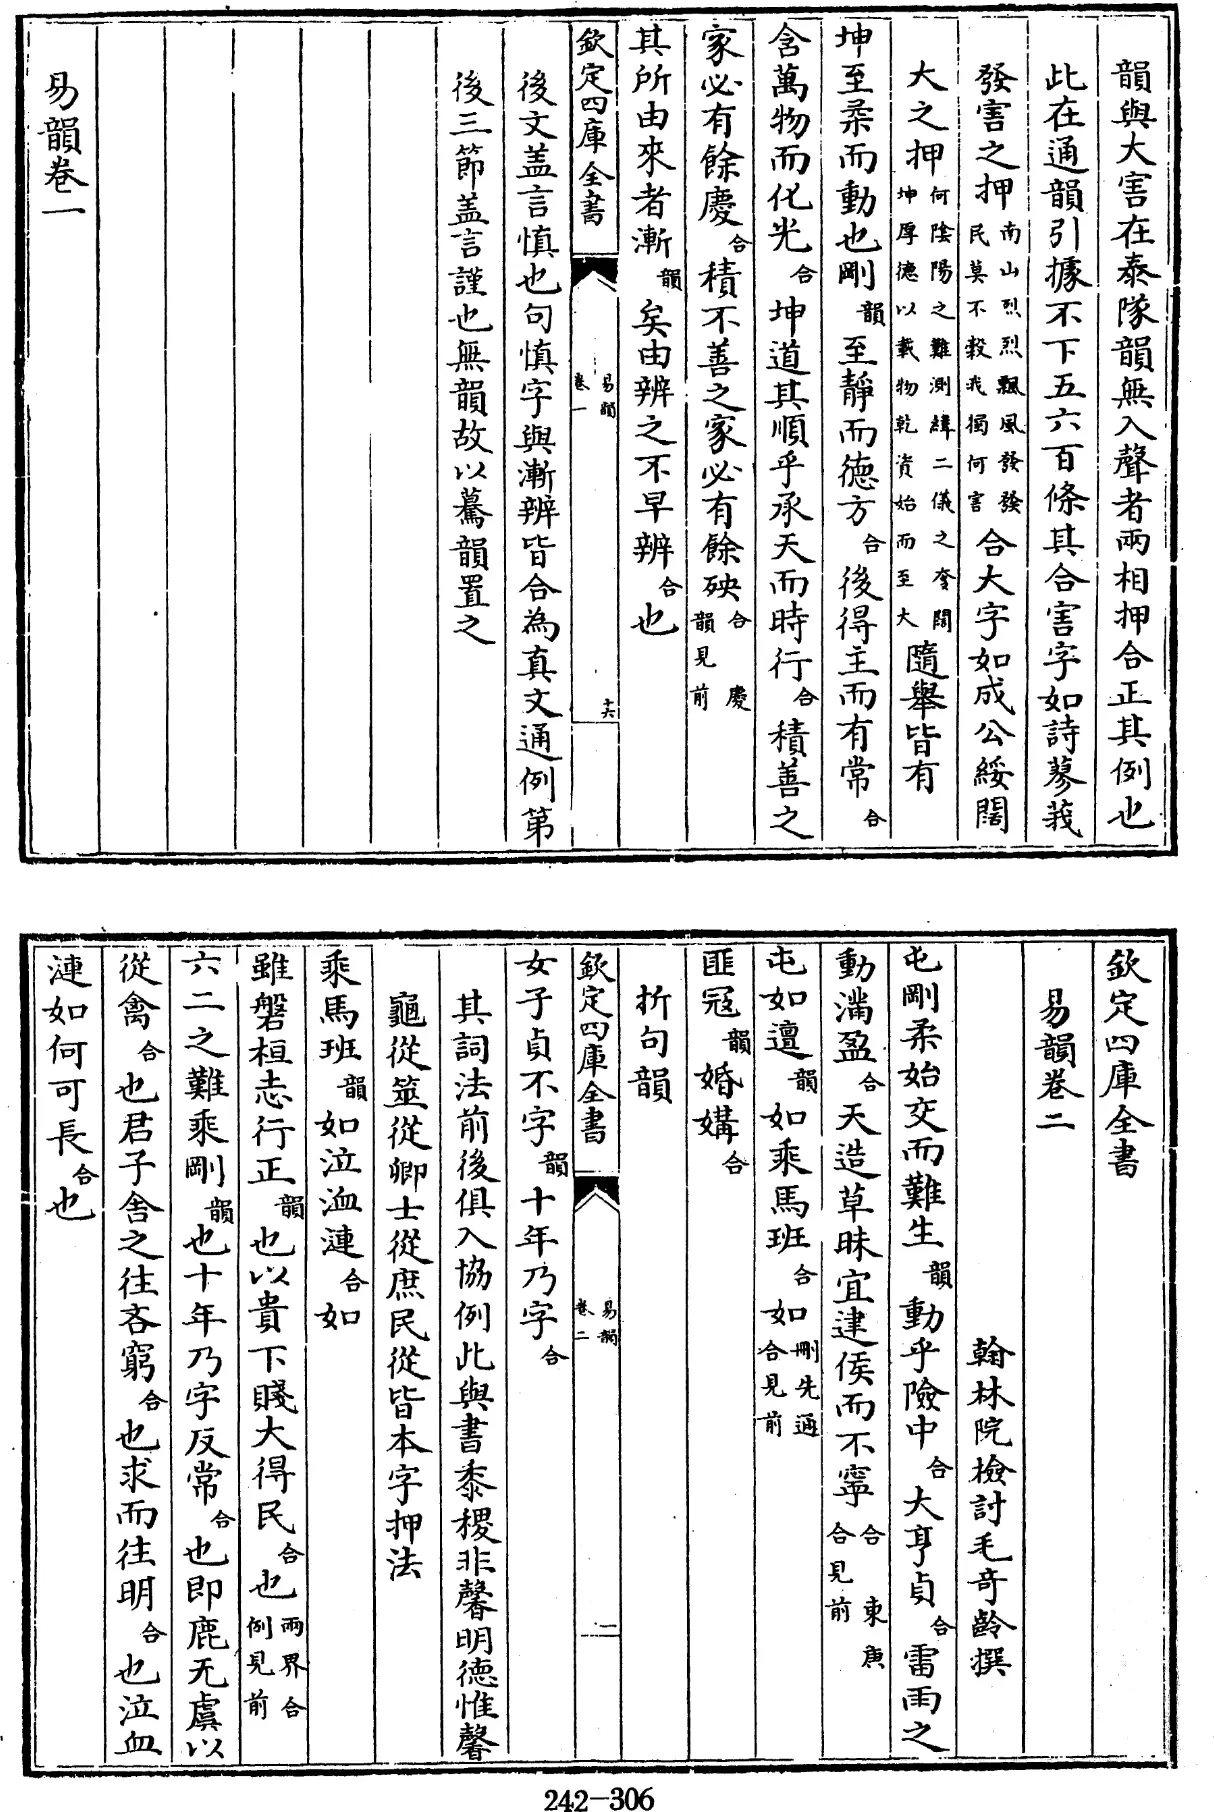 韻與大害在泰隊韻無入聲者兩相押合正其例也
此在通韻引據不下五六百條其合害字如詩蓼莪
發害之押南山烈烈飄風發發民莫不穀我獨何害合大字如成公綏闊
大之押何陰陽之難測緯二儀之奓闊坤厚德以載物乾資始而至大隨舉皆有
坤至柔而動也剛韻至靜而德方合後得主而有常合
含萬物而化光合坤道其順乎承天而時行合積善之
家必有餘慶合積不善之家必有餘殃合慶韻見前
其所由來者漸韻矣由辨之不早辨合也
欽定四庫全書
易韻
卷一
十六
後文盖言慎也句慎字與漸辨皆合為真文通例第
後三節盖言謹也無韻故以驀韻置之
易韻卷一
欽定四庫全書
易韻卷二
翰林院檢討毛奇齡撰
屯剛柔始交而難生韻動乎險中合大亨貞合雷雨之
動滿盈合天造草昧宜建侯而不寧合東庚合見前
屯如邅韻如乘馬班合如刪先通合見前
匪冦韻婚媾合
折句韻
欽定四庫全書
易韻
卷二
一
女子貞不字韻十年乃字合
其詞法前後俱入協例此與書黍稷非馨明德惟馨
龜從筮從卿士從庶民從皆本字押法
乘馬班韻如泣血漣合如
雖磐桓志行正韻也以貴下賤大得民合也兩界合例見前
六二之難乘剛韻也十年乃字反常合也即鹿无虞以
從禽合也君子舍之往吝窮合也求而往明合也泣血
漣如何可長合也
242-306